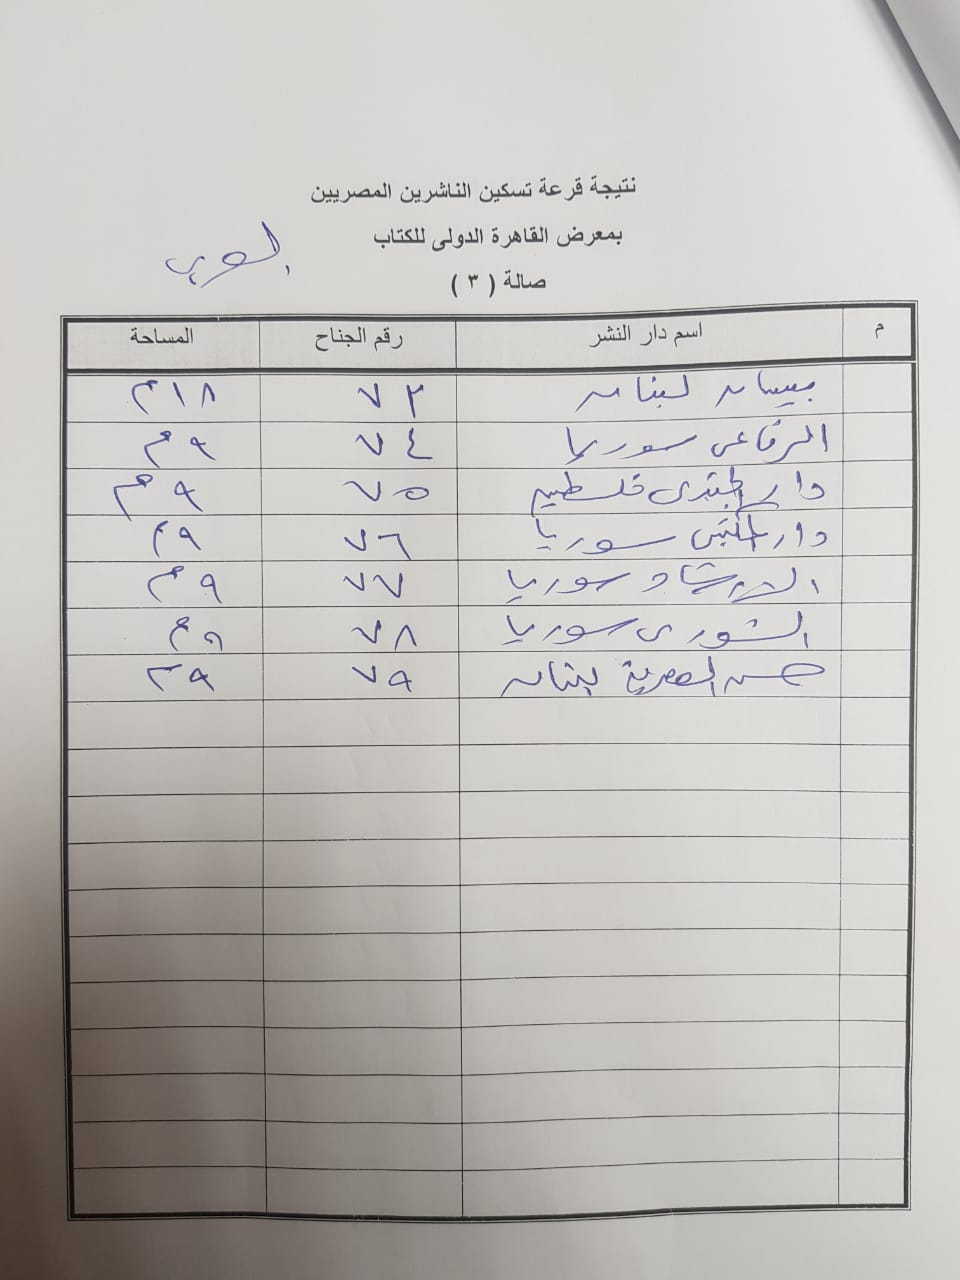 نتيجة قرعة تسكين الناشرين المصريين
بمعرض القاهرة الدولى للكتاب
العرب
صالة ( ٣ )
م اسم دار النشر رقم الجناح المساحة
بيسان لبنان ٧٣ ١٨م
الرفاعى سوريا ٧٤ ٩م
دار الجندى فلسطين ٧٥ ٩م
دار سوريا ٧٦ ٩م
الارشاد سوريا ٧٧ ٩م
الشورى سوريا ٧٨ ٩م
حسن العصرية لبنان ٧٩ ٩م